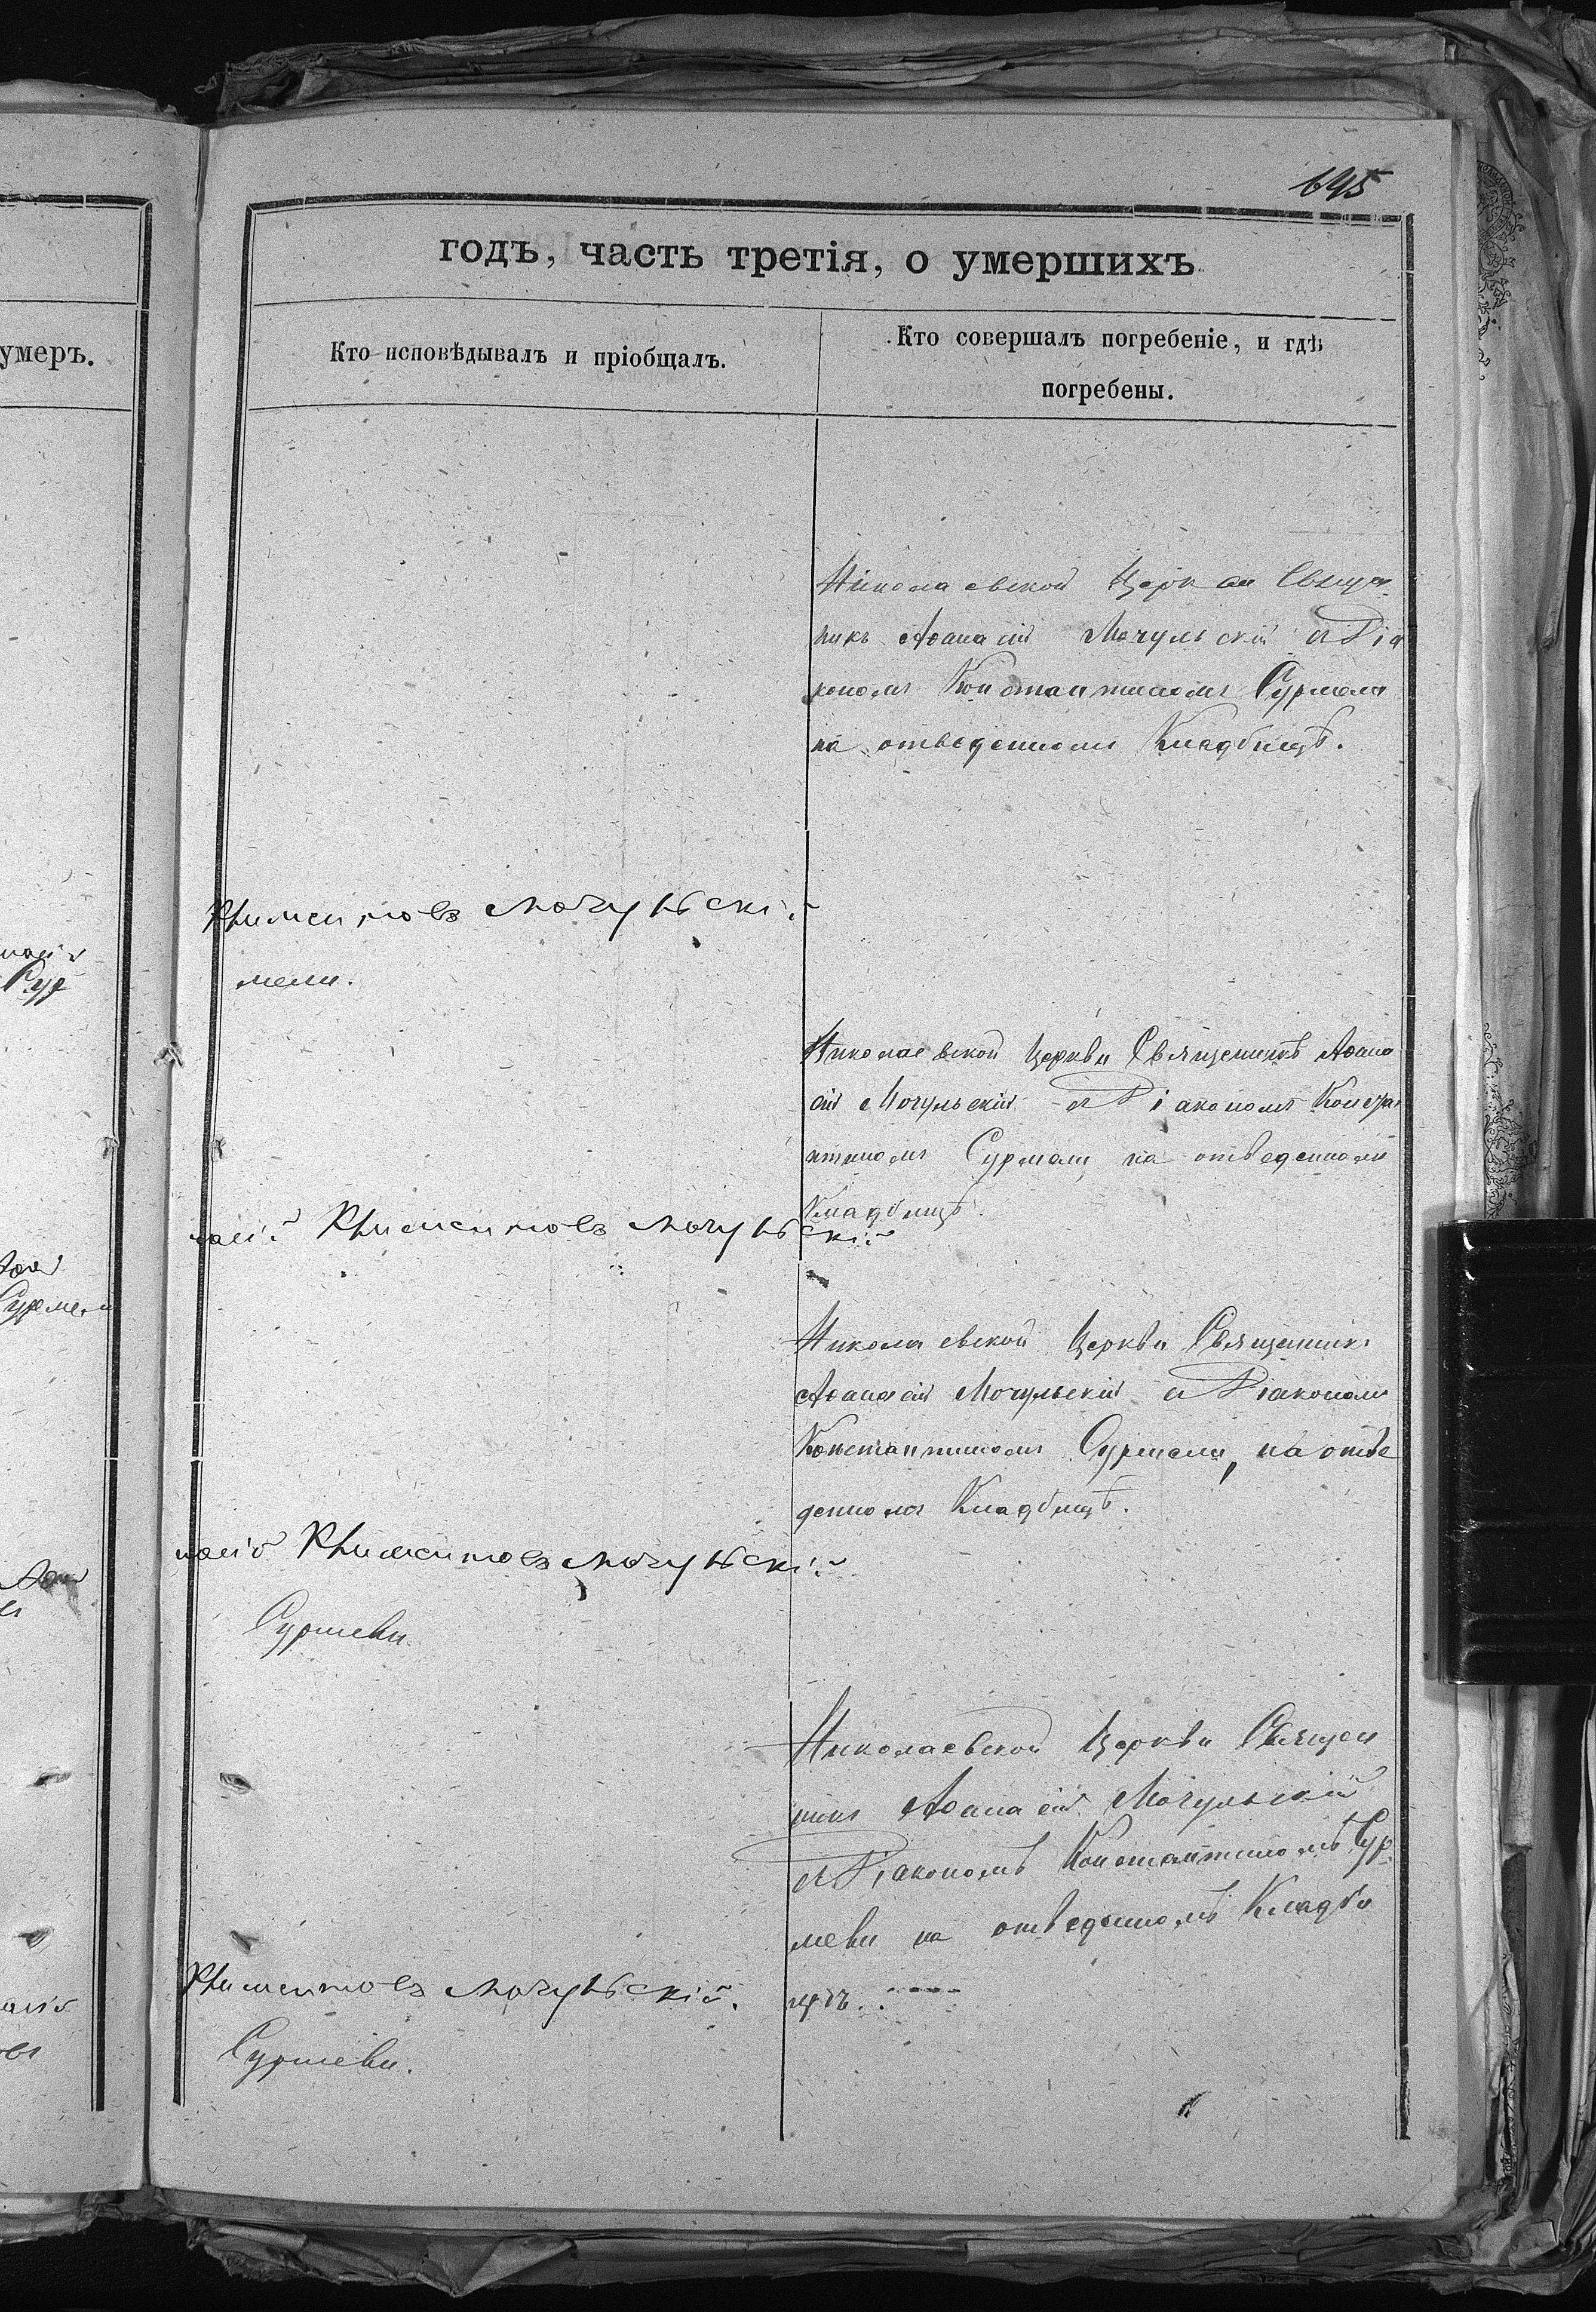 695
годъ, часть третія, о умершихъ
умеръ.
Кто исповѣдывалъ и пріобщалъ.
Кто совершалъ погребеніе, и гдѣ
погребены.
Николаевской Церкви Священ
никъ Аѳанасій Мочульскій съ Діа
кономъ Константиномъ Сурмели
на отведенномъ Кладбищѣ.
Климентовъ Мочульскій
мели.
Сур
Николаевской Церкви Священникъ Аѳана
сій Мочульскій съ Діакономъ Конста
нтиномъ Сурмели на отведенномъ
Кладбищѣ.
насій Климентовъ Мочульскій
Сурмели
Николаевской Церкви Священникъ
Аѳанасій Мочульскій съ Діакономъ
Константиномъ Сурмели, на отве
денномъ Кладбищѣ.
насій Климентовъ Мочульскій
Сурмеви
Николаевской Церкви Священ
никъ Аѳанасій Мочульскій
съ Діакономъ Константиномъ Сур
меви на отведенномъ Кладби
щѣ.
Климентовъ Мочульскій.
Сурмеви.